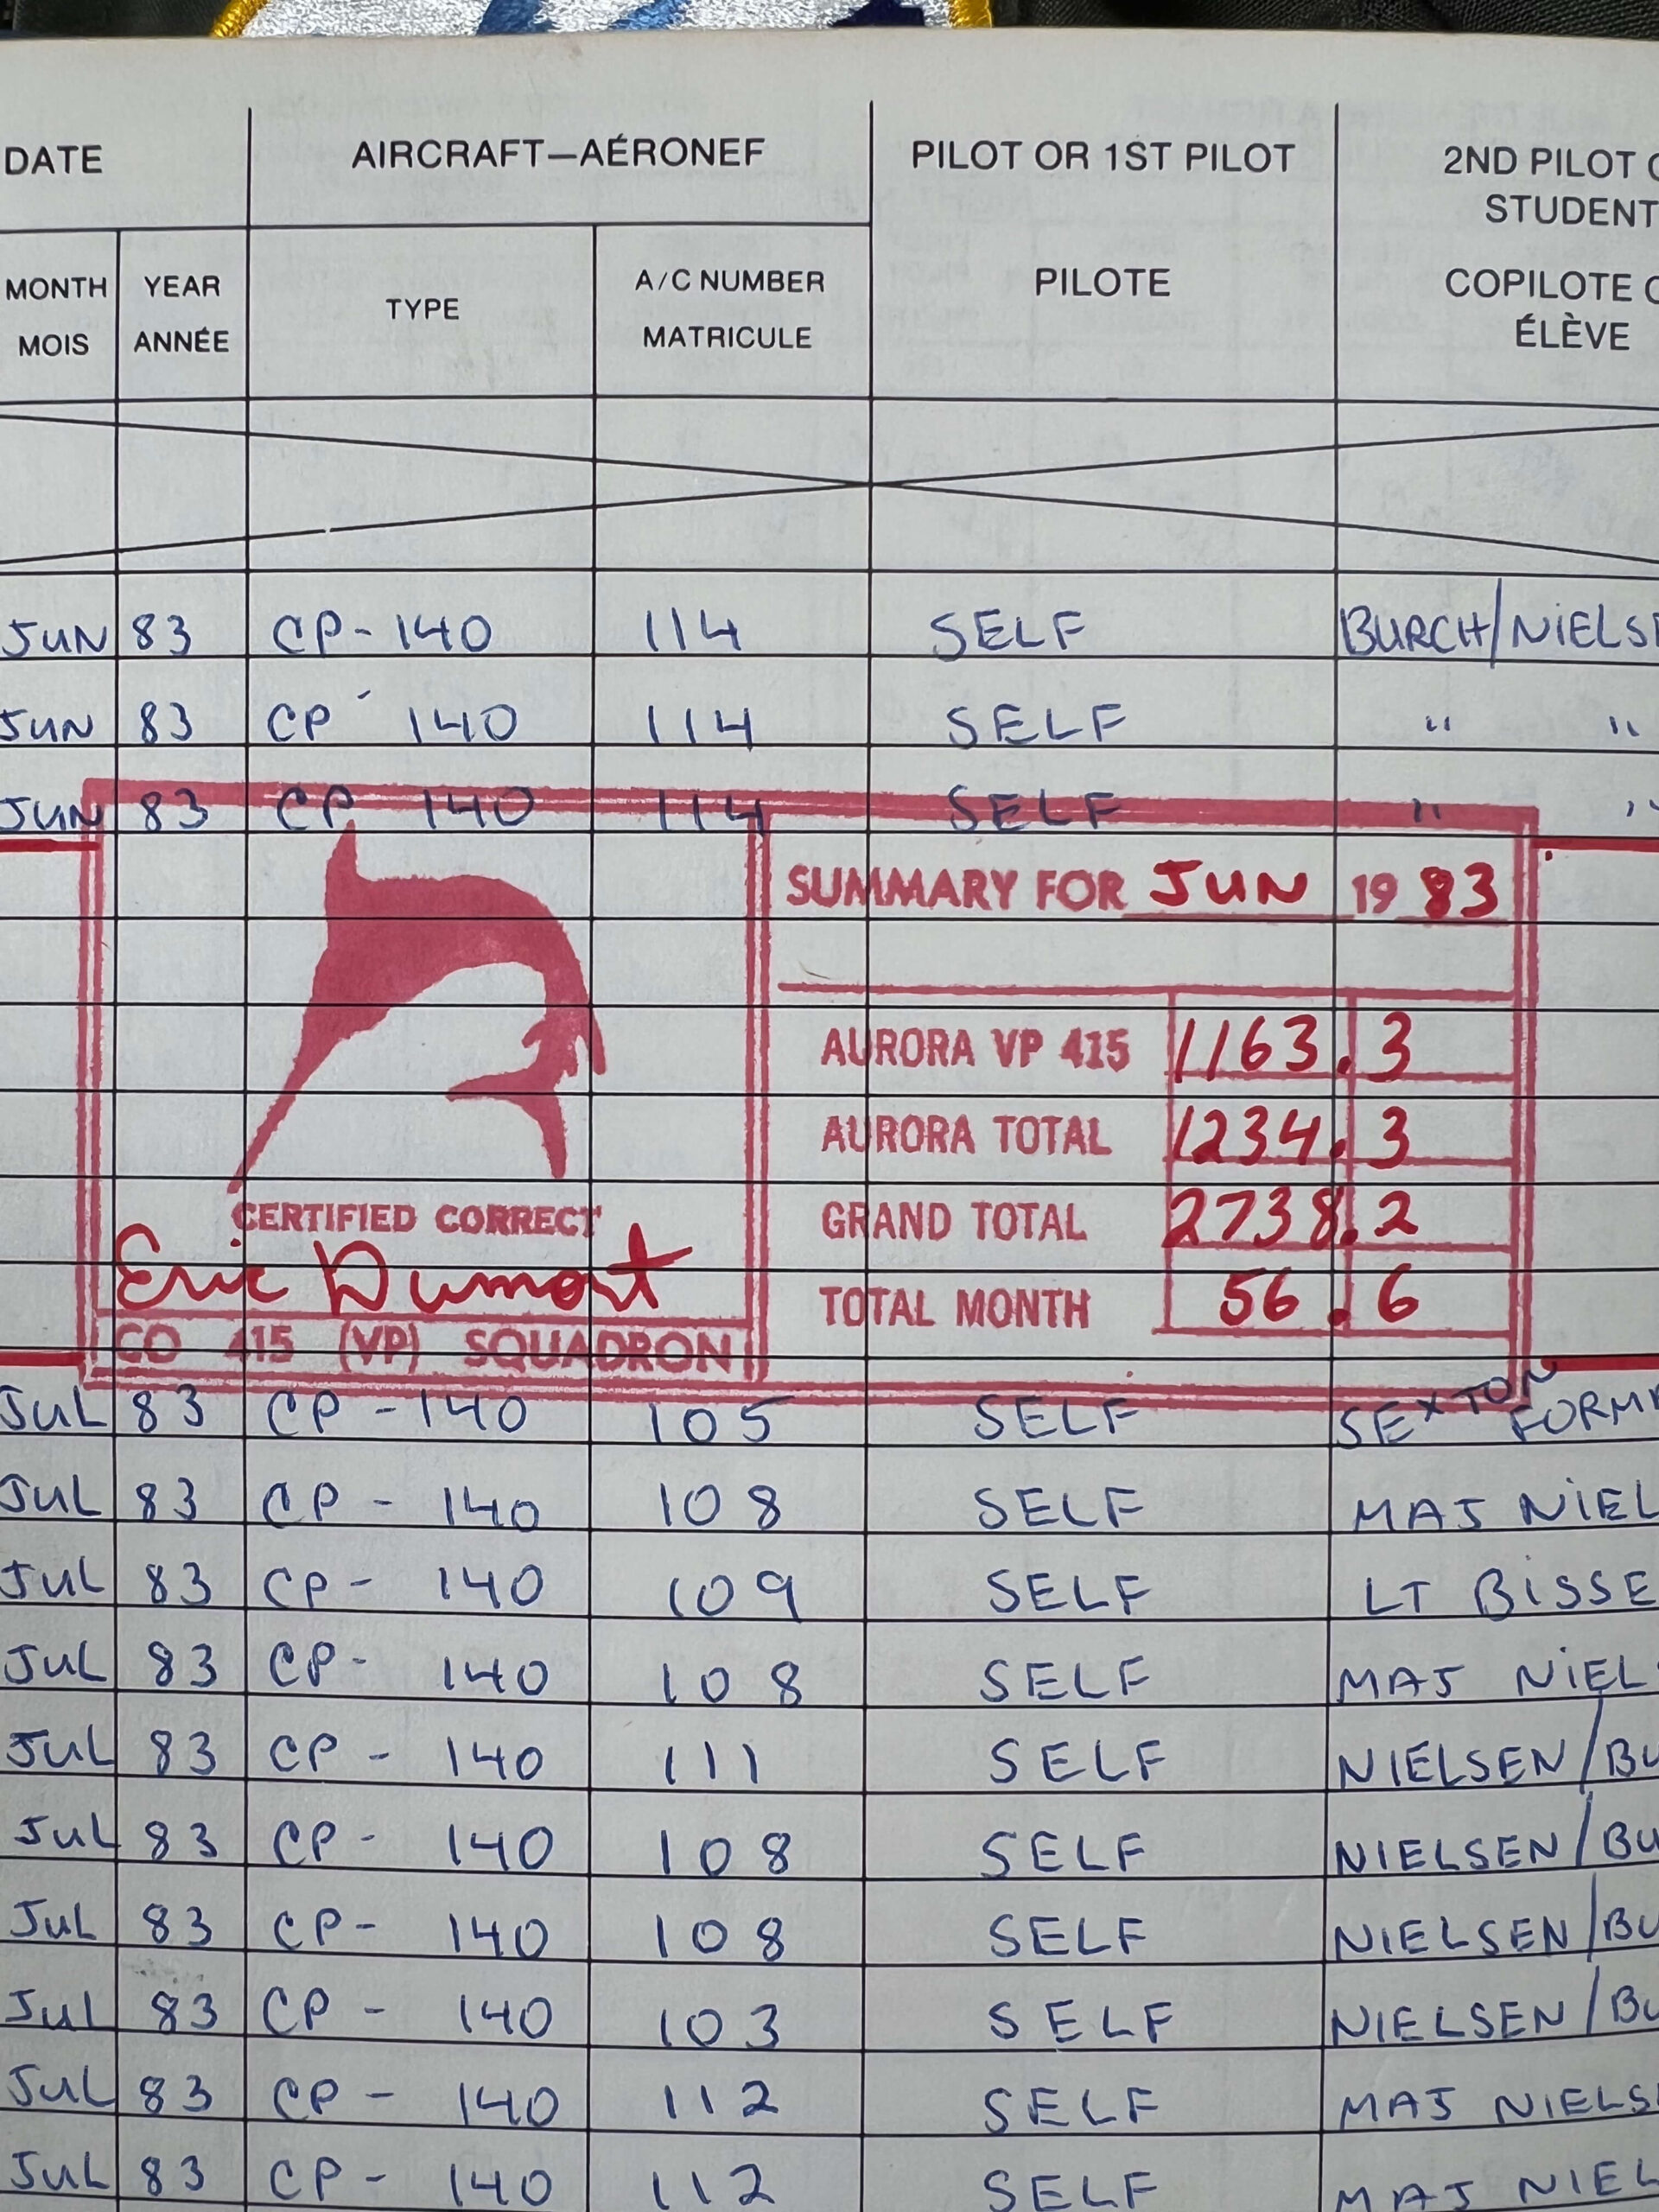 DATE AIRCRAFT—AÉRONEF PILOT OR 1ST PILOT 2ND PILOT O
STUDENT
MONTH YEAR TYPE A/C NUMBER PILOTE COPILOTE O
MOIS ANNÉE MATRICULE ÉLÈVE
JUN 83 CP-140 114 SELF BURCH/NIELSE
JUN 83 CP-140 114 SELF " "
JUN 83 CP 140 114 SELF " "
SUMMARY FOR JUN 19 83
AURORA VP 415 1163.3
AURORA TOTAL 1234.3
GRAND TOTAL 2738.2
TOTAL MONTH 56.6
CERTIFIED CORRECT
Eric Dumont
CO 415 (VP) SQUADRON
JUL 83 CP-140 105 SELF SEXTON FORM
JUL 83 CP-140 108 SELF MAJ NIEL
JUL 83 CP-140 109 SELF LT BISSE
JUL 83 CP-140 108 SELF MAJ NIELS
JUL 83 CP-140 111 SELF NIELSEN/BU
JUL 83 CP-140 108 SELF NIELSEN/BU
JUL 83 CP-140 108 SELF NIELSEN/BU
JUL 83 CP-140 103 SELF NIELSEN/BU
JUL 83 CP-140 112 SELF MAJ NIELS
JUL 83 CP-140 112 SELF MAJ NIEL